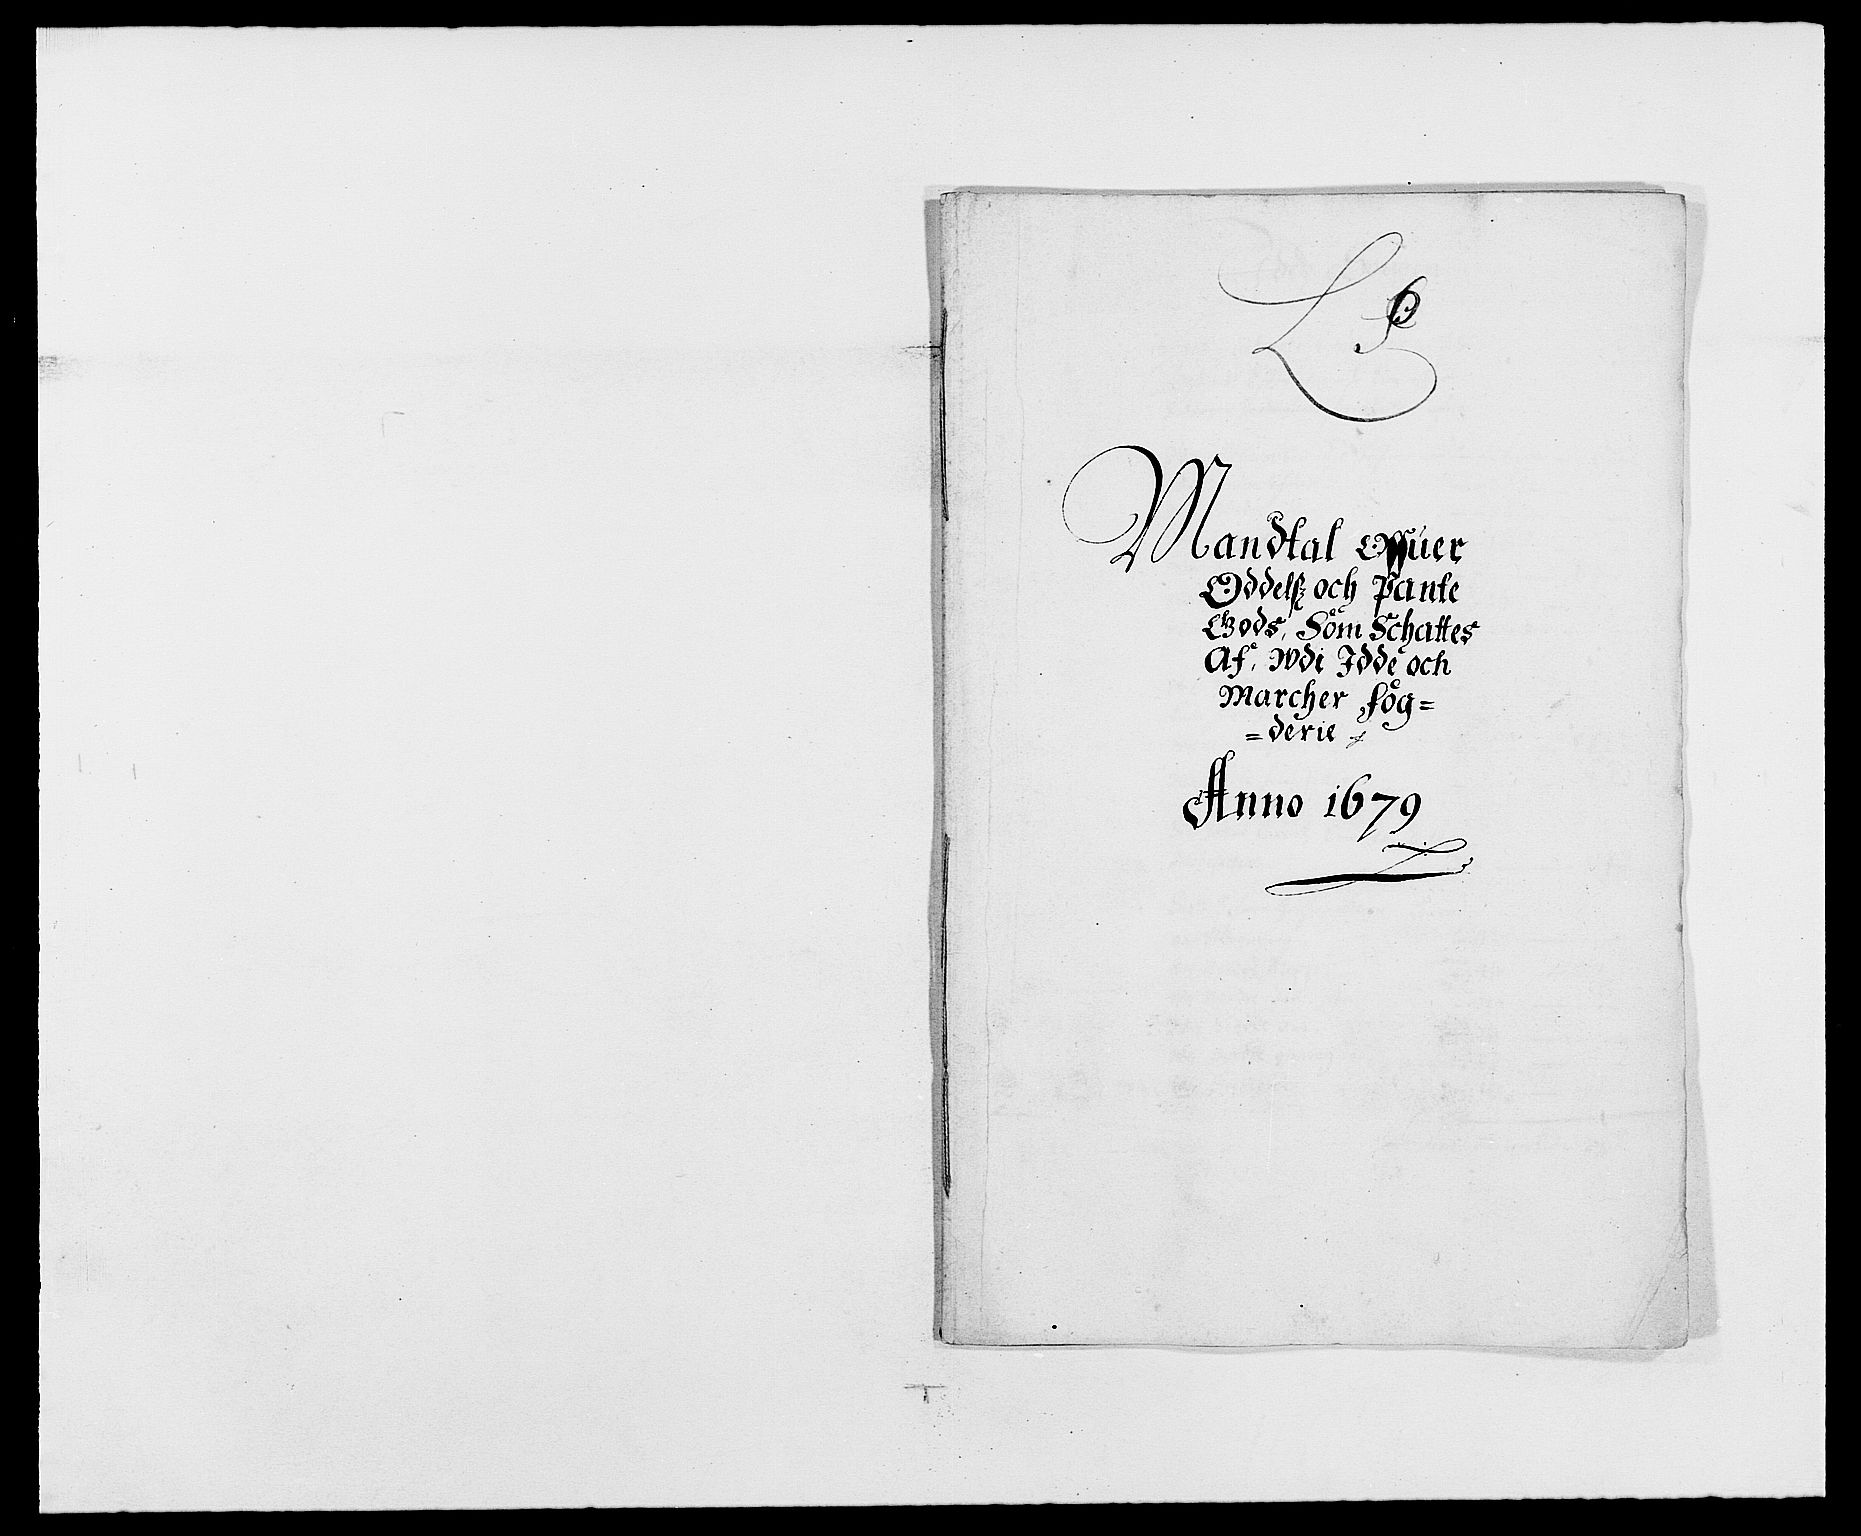 L
Mandtal Offuer
Oddelß och Pante
Gods, Som Schattes
Af, Wdi Idde och
Marcher fög=
=derie
Anno 1679